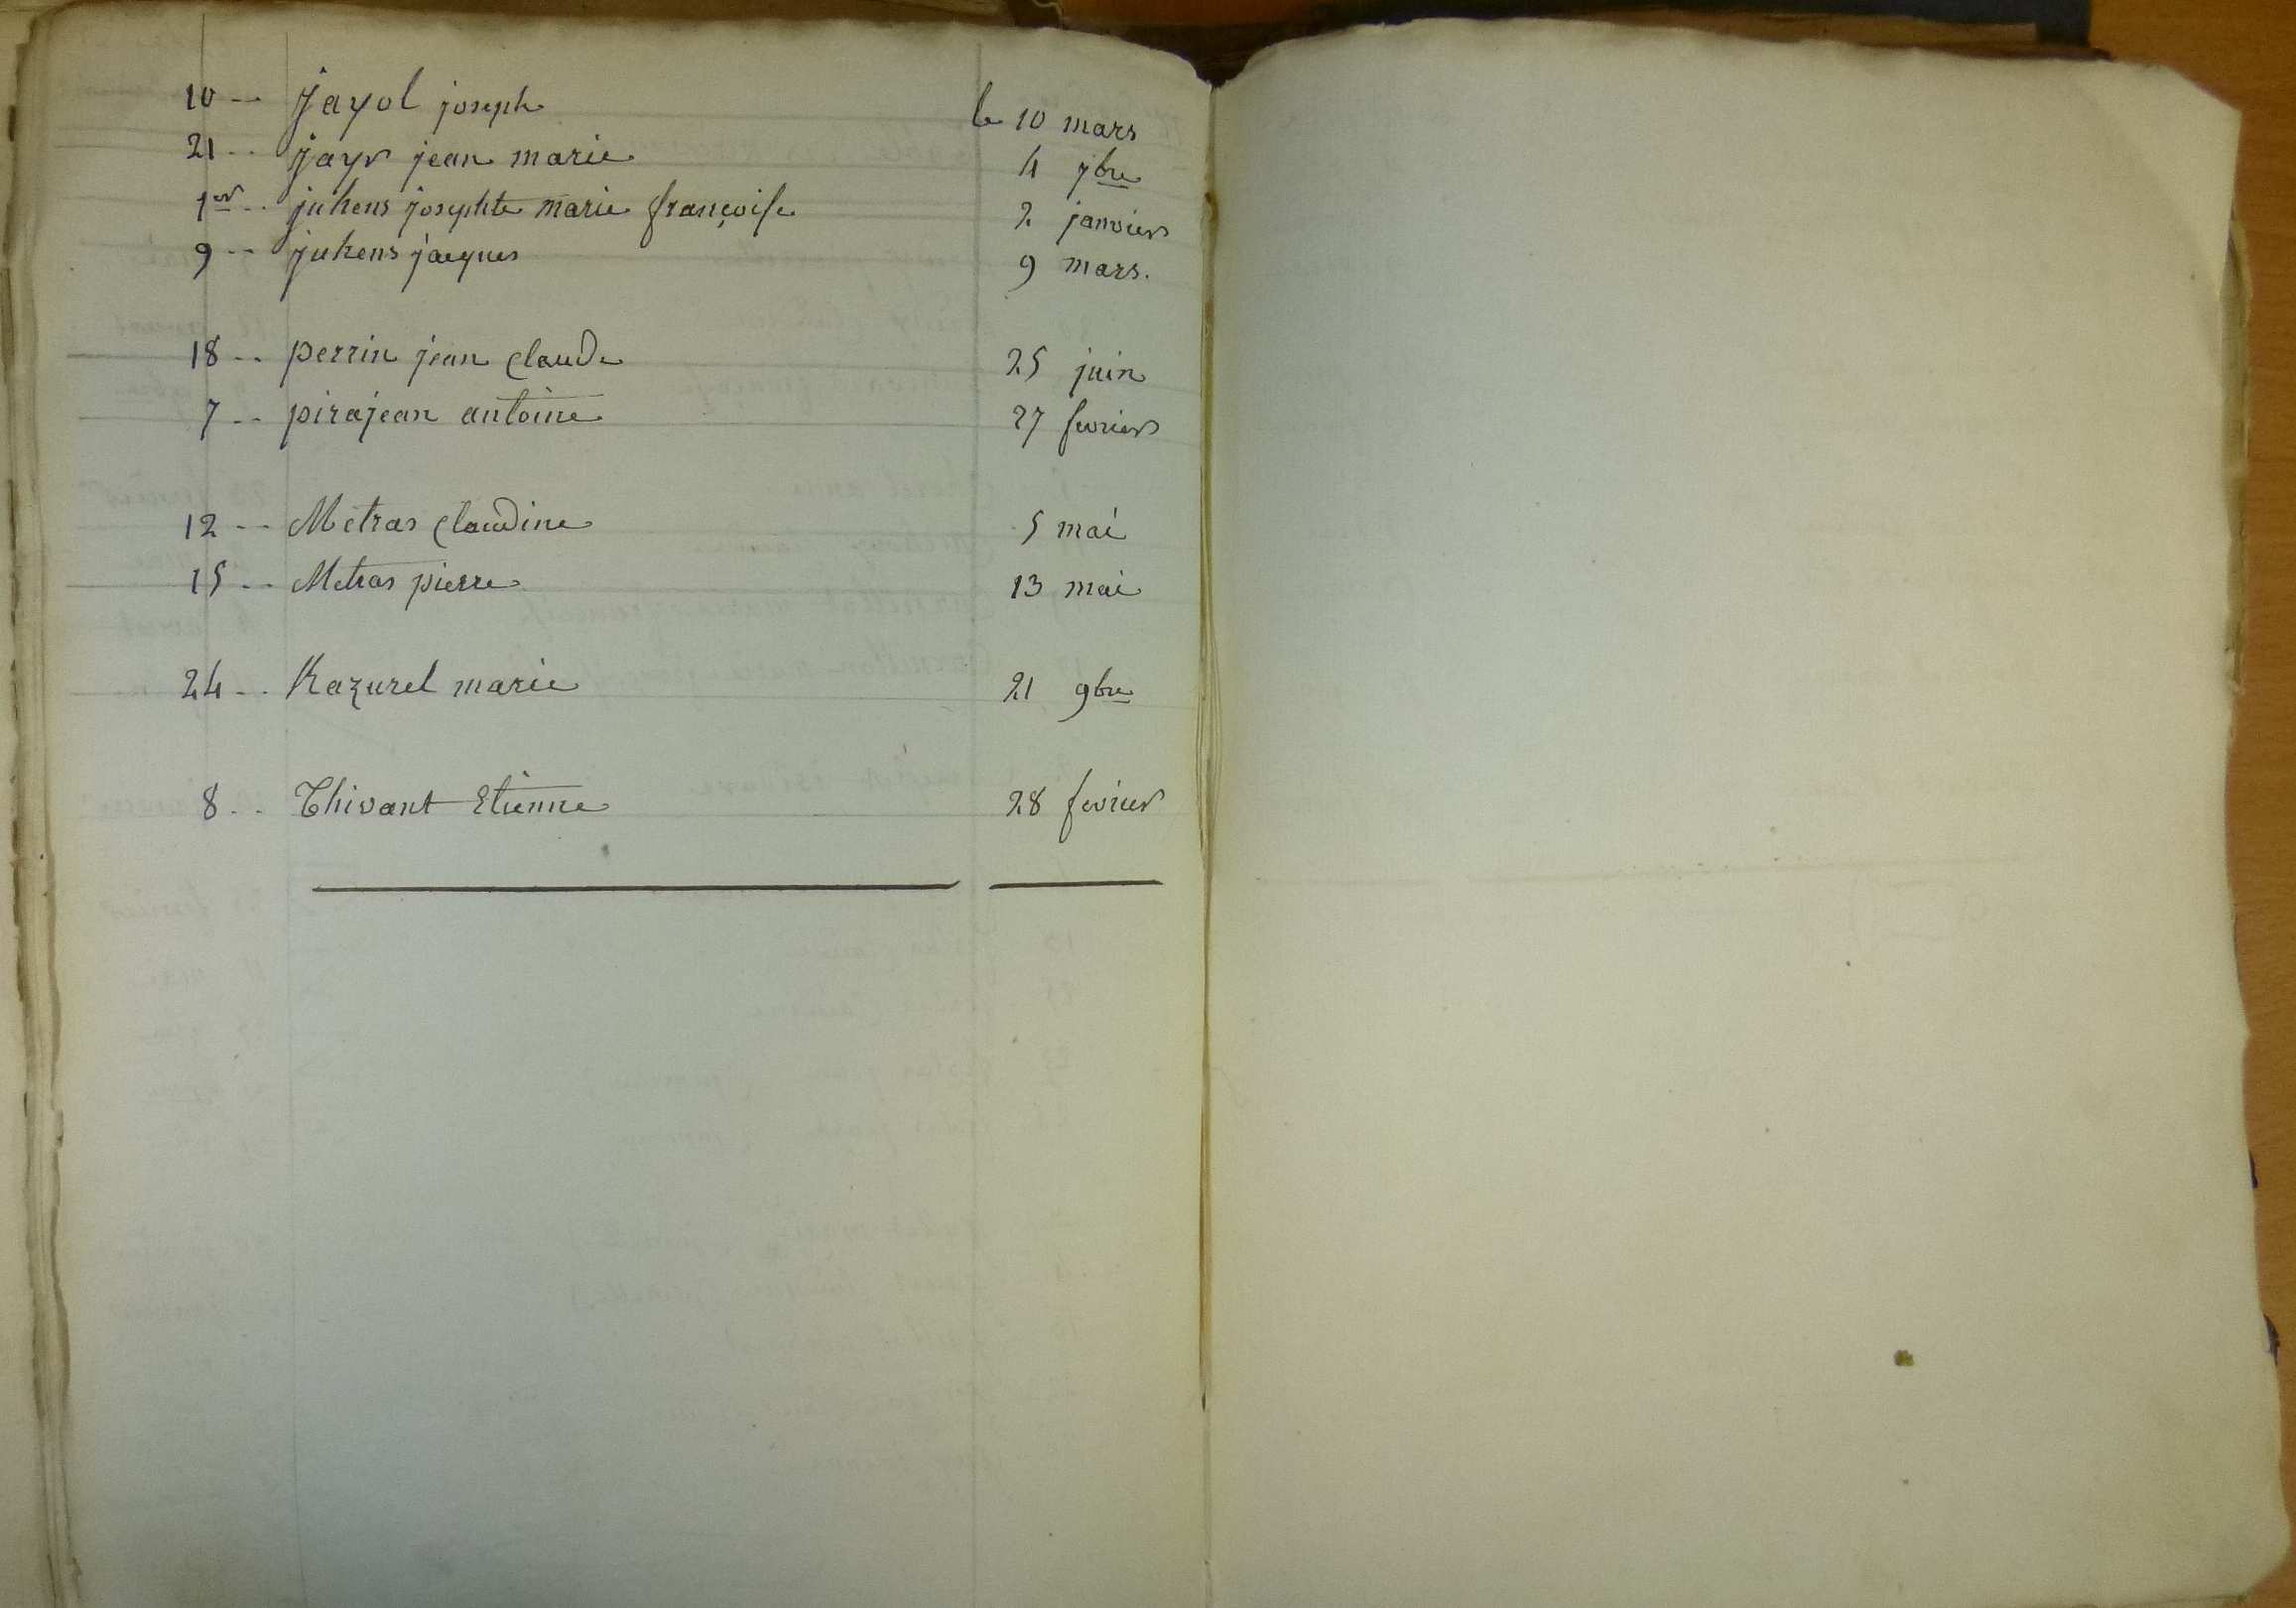 10 -- Jayol joseph le 10 mars
21 -- jayr jean marie 4 7bre
1er -- juhens josephte marie françoise 2 janvier
9 -- juhens jacques 9 mars.
18 -- perrin jean Claude 25 juin
7 -- pirajean antoine 27 fevrier
12 -- Metras Claudine 5 mai
15 -- Metras pierre 13 mai
24 -- Razurel marie 21 9bre
8 -- Thivant Etienne 28 fevrier